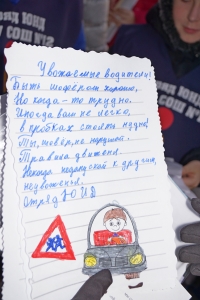 ряд ЮИД
СОШ №2
Уважаемые водители!
Быть шофером хорошо,
Но когда-то трудно.
Иногда вам не легко,
в пробках стоять нудно.
Ты, шофер, не нарушай.
Правила движения.
Никогда не допускай к другим,
неуваженья.
Отряд ЮИД